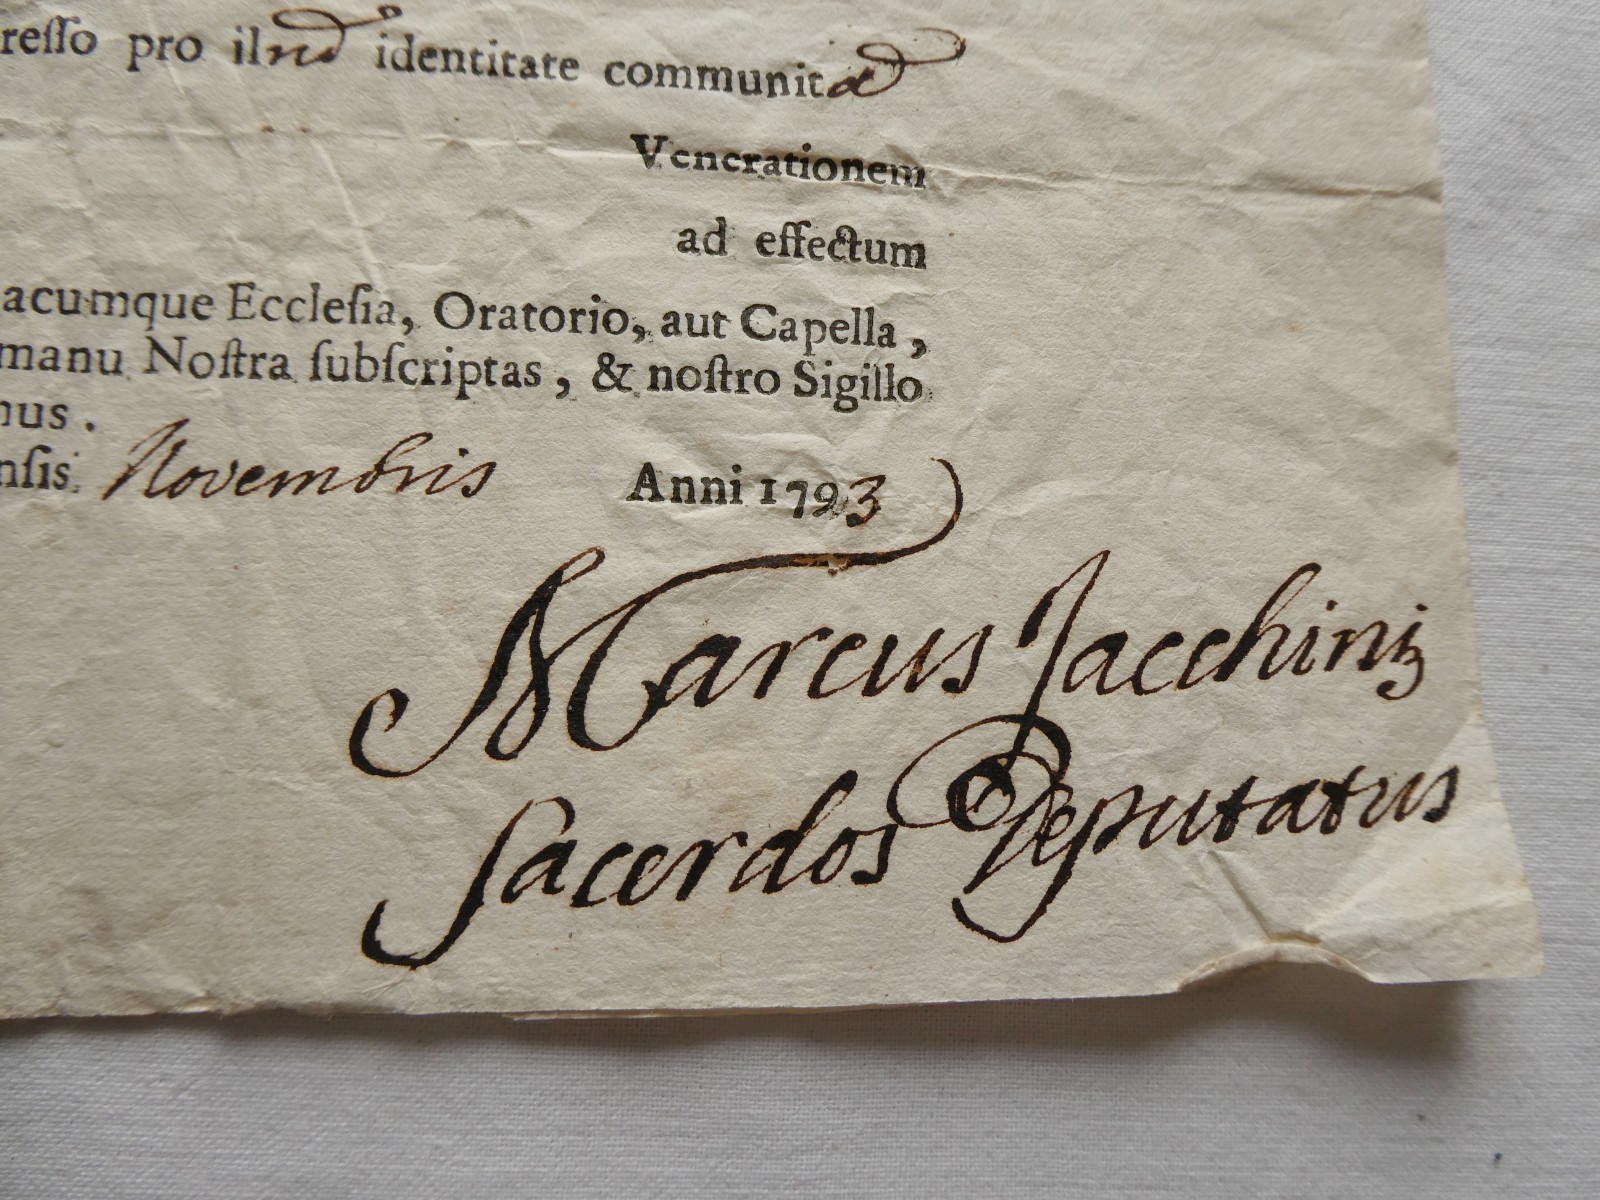 reſſo pro illius identitate communita
Venerationem
ad effectum
acumque Eccleſia, Oratorio, aut Capella,
manu Noſtra ſubſcriptas, & noſtro Sigillo
nus.
nſis Novembris Anni 1793
Marcus Jacchini
Sacerdos Deputatus